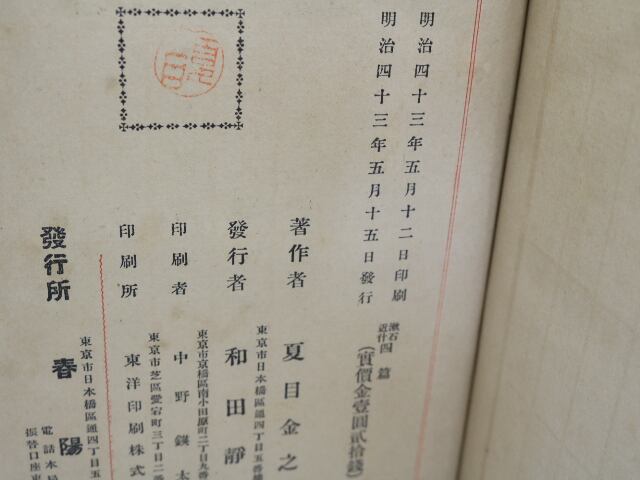 明治四十三年五月十二日印刷
明治四十三年五月十五日發行
漱石近什四篇
(實價金壹圓貳拾錢)
著作者
夏目金之
東京市日本橋區通四丁目五番
發行者
和田靜
東京市京橋區南小田原町二丁目九番
印刷者
中野鍈太
東京市芝區愛宕町三丁目二番
印刷所
東洋印刷株式
東京市日本橋區通四丁目五
發行所
春陽
電話本局
振替口座東